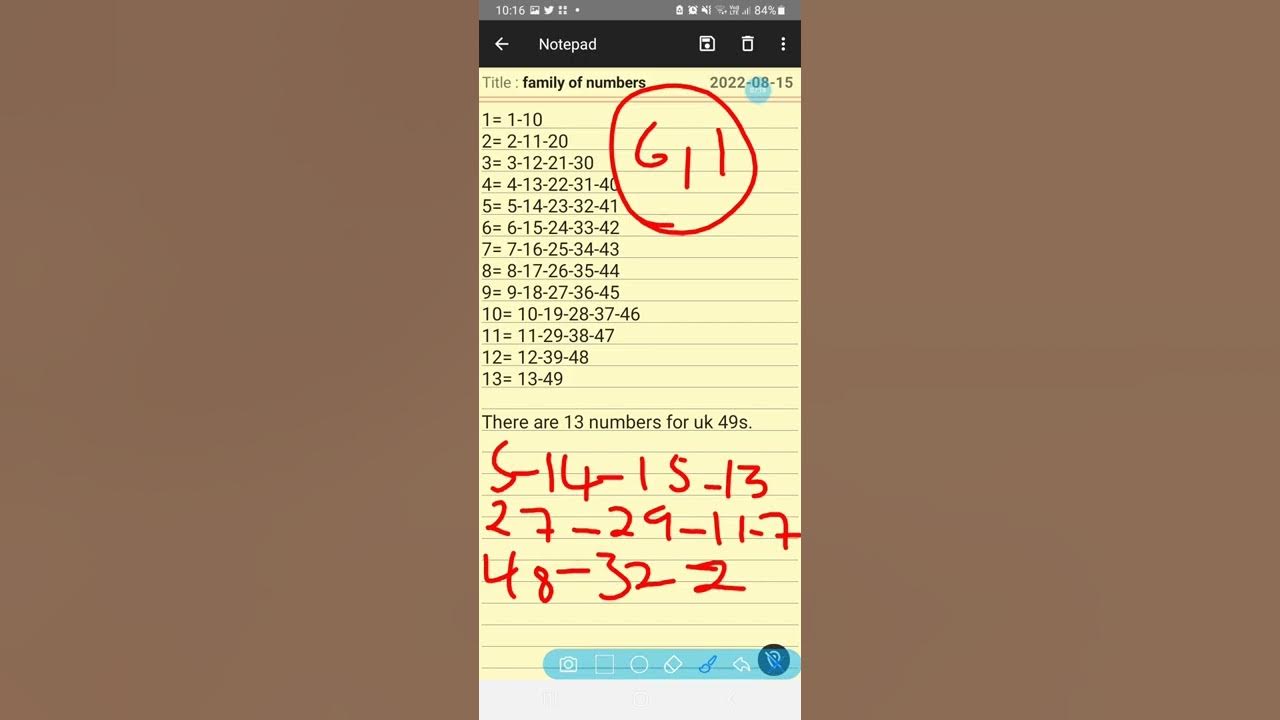 10:16 84%
Notepad
Title : family of numbers 2022-08-15
1= 1-10
2= 2-11-20
3= 3-12-21-30
4= 4-13-22-31-40
5= 5-14-23-32-41
6= 6-15-24-33-42
7= 7-16-25-34-43
8= 8-17-26-35-44
9= 9-18-27-36-45
10= 10-19-28-37-46
11= 11-29-38-47
12= 12-39-48
13= 13-49
6,1
There are 13 numbers for uk 49s.
5-14-15-13
27-29-11-7
48-32-2